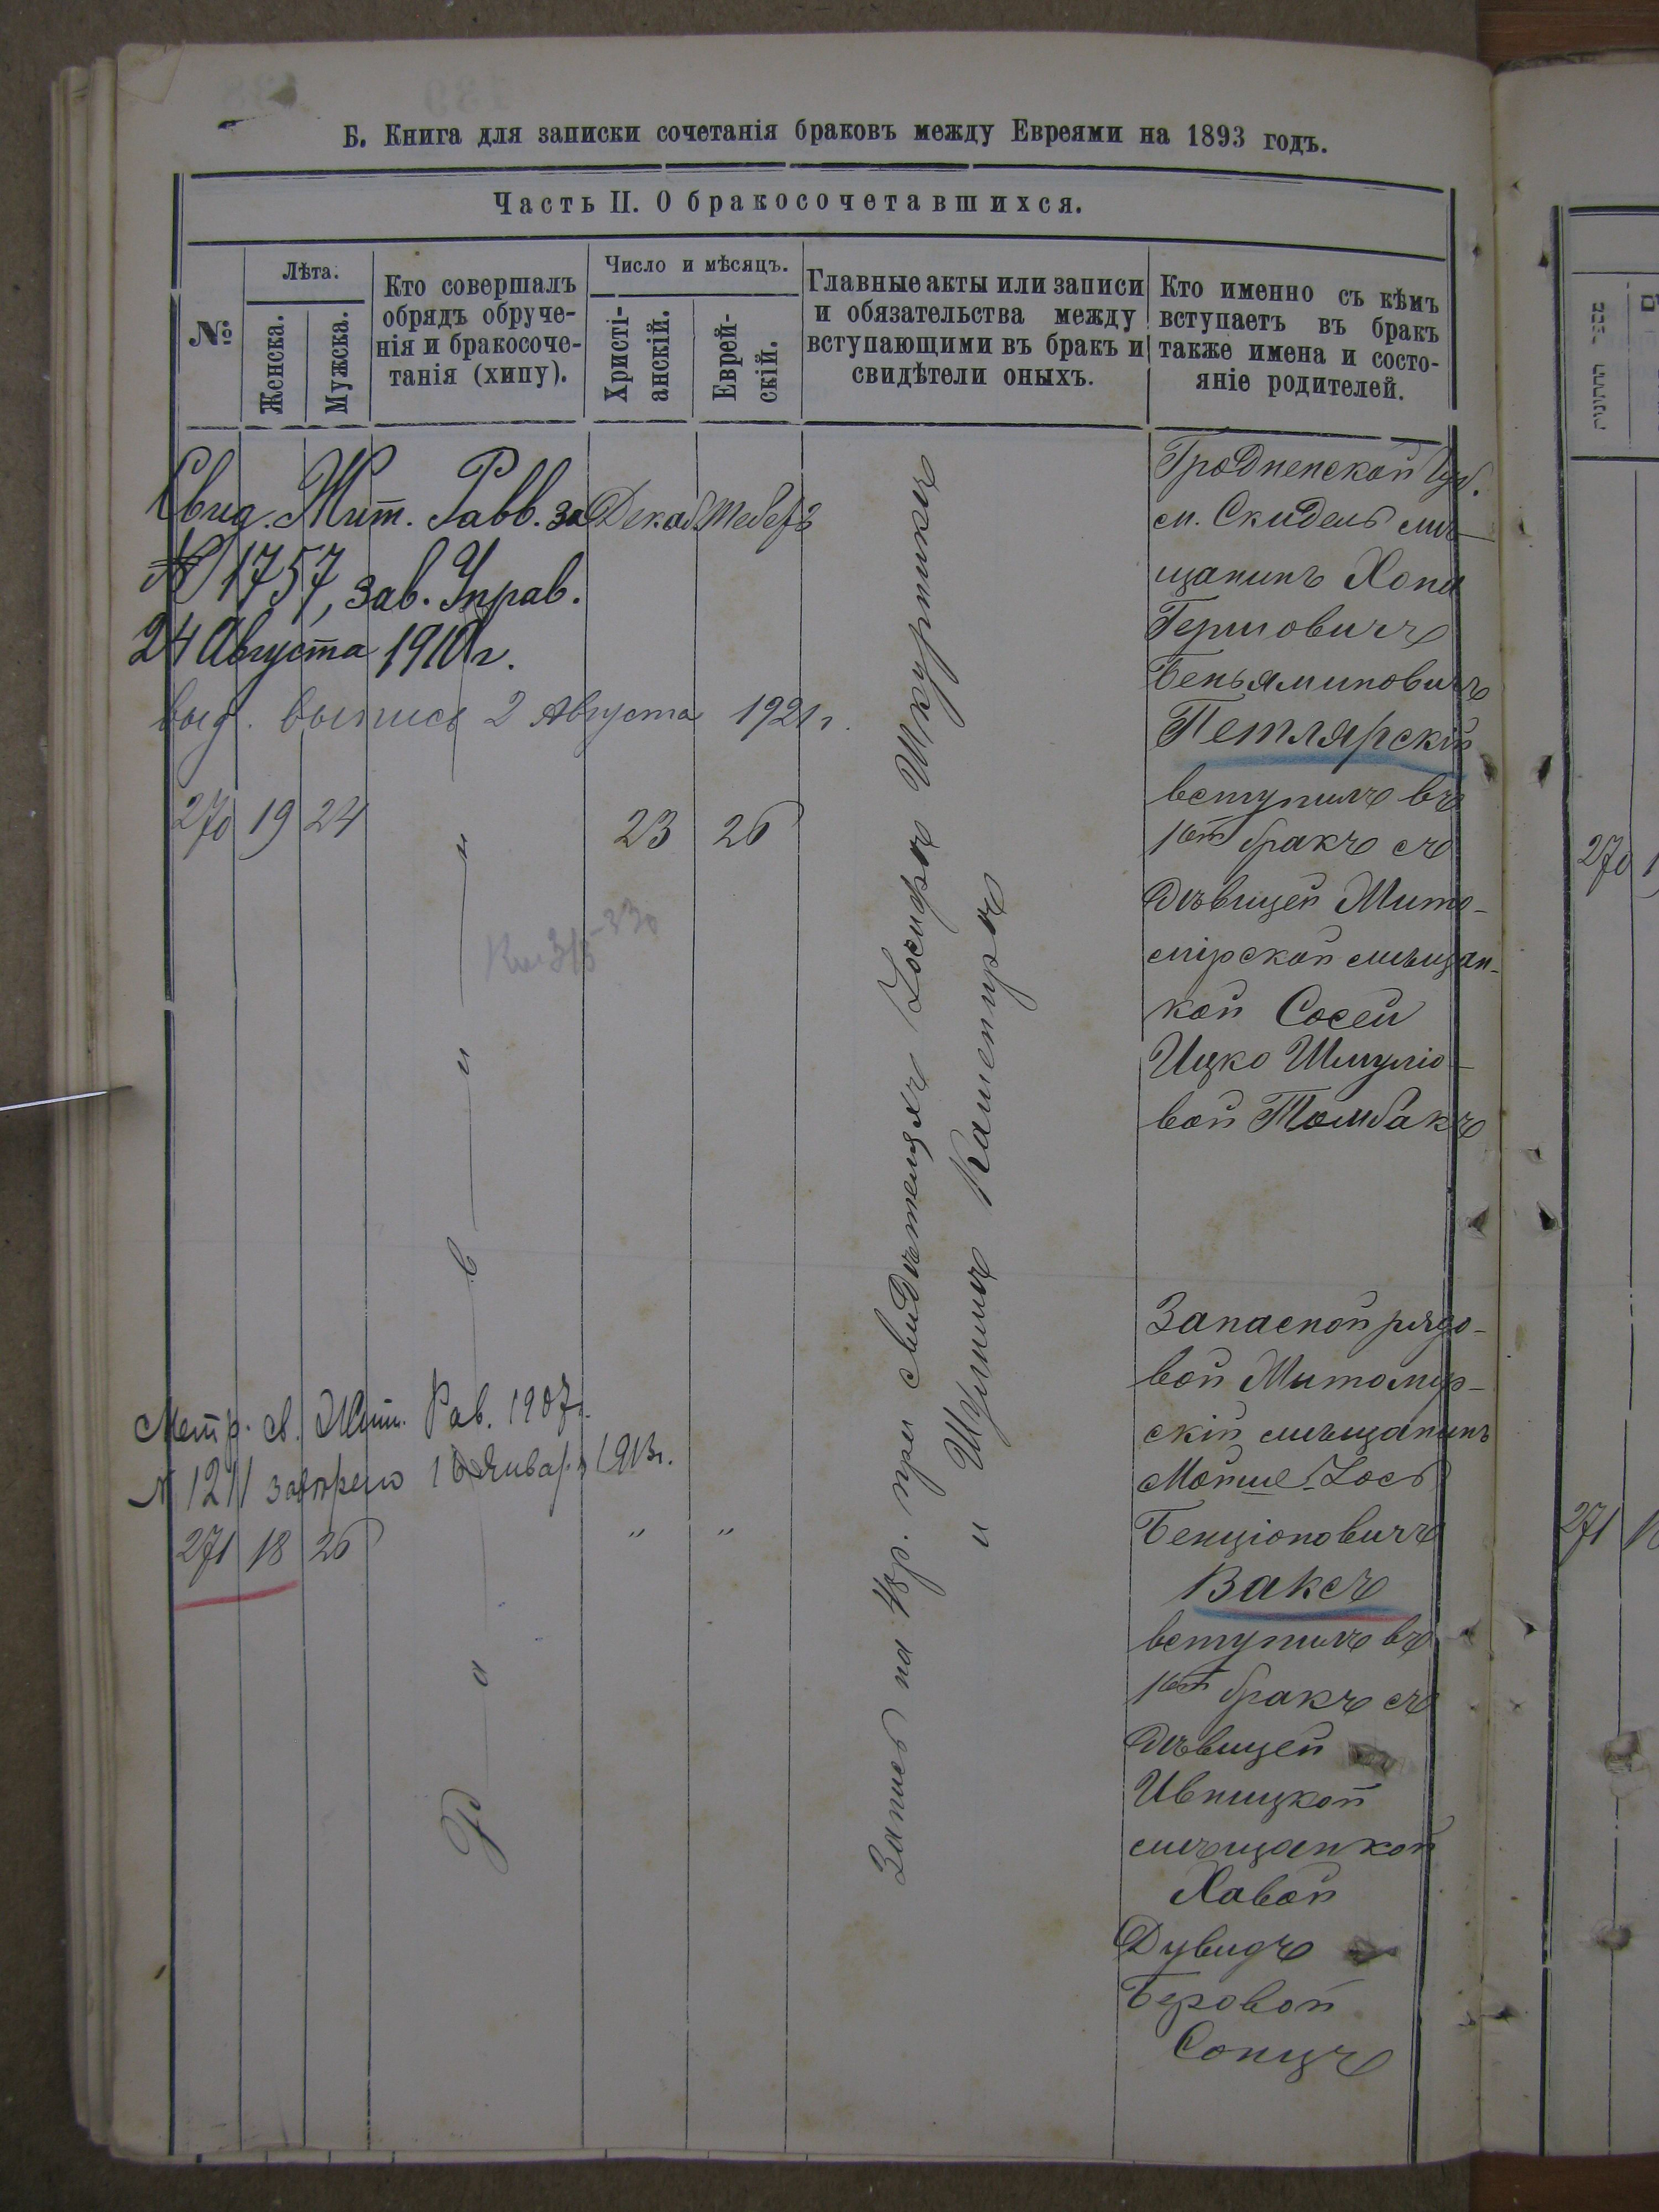 Б. Книга для записки сочетанія браковъ между Евреями на 1893 годъ.
Часть II. О бракосочетавшихся.
№:
Лѣта:
Женска.
Мужска.
Кто совершалъ
обрядъ обруче-
нія и бракосоче-
танія (хипу).
Число и мѣсяцъ.
Христі-
анскій.
Еврей-
скій.
Главные акты или записи
и обязательства между
вступающими въ бракъ и
свидѣтели оныхъ.
Кто именно съ кѣмъ
вступаетъ въ бракъ
также имена и состо-
яніе родителей.
Свид. Жит. Равв. за
№ 1757, зав. Управ.
24 Августа 1910 г.
выд. выпись 2 Августа 1921 г.
Декаб. Тебетъ
270 19 24
23 26
Раввинъ
Запись на 48 р. при свидѣтеляхъ Іосифъ Шкурникъ
и Шулимъ Камениръ
Гродненской Губ.
м. Скидель мѣ-
щанинъ Хона
Гершовичъ
Беньяминовичъ
Петлярскій
вступилъ въ
1ый бракъ съ
дѣвицей Жито-
мірской мѣщан-
кой Сосей
Ицко Шмуліо-
вой Томбакъ
Метр. св. Жит. Рав. 1907 г.
№ 1211 завѣрено 16 Января 1913 г.
271 18 26
" "
Запасной рядо-
вой Житомір-
скій мѣщанинъ
Мойше-Іось
Бенціоновичъ
Ваксъ
вступилъ въ
1ый бракъ съ
дѣвицей
Ивницкой
мѣщанкой
Хавой
Дувидъ
Беровой
Сонцъ
270
271